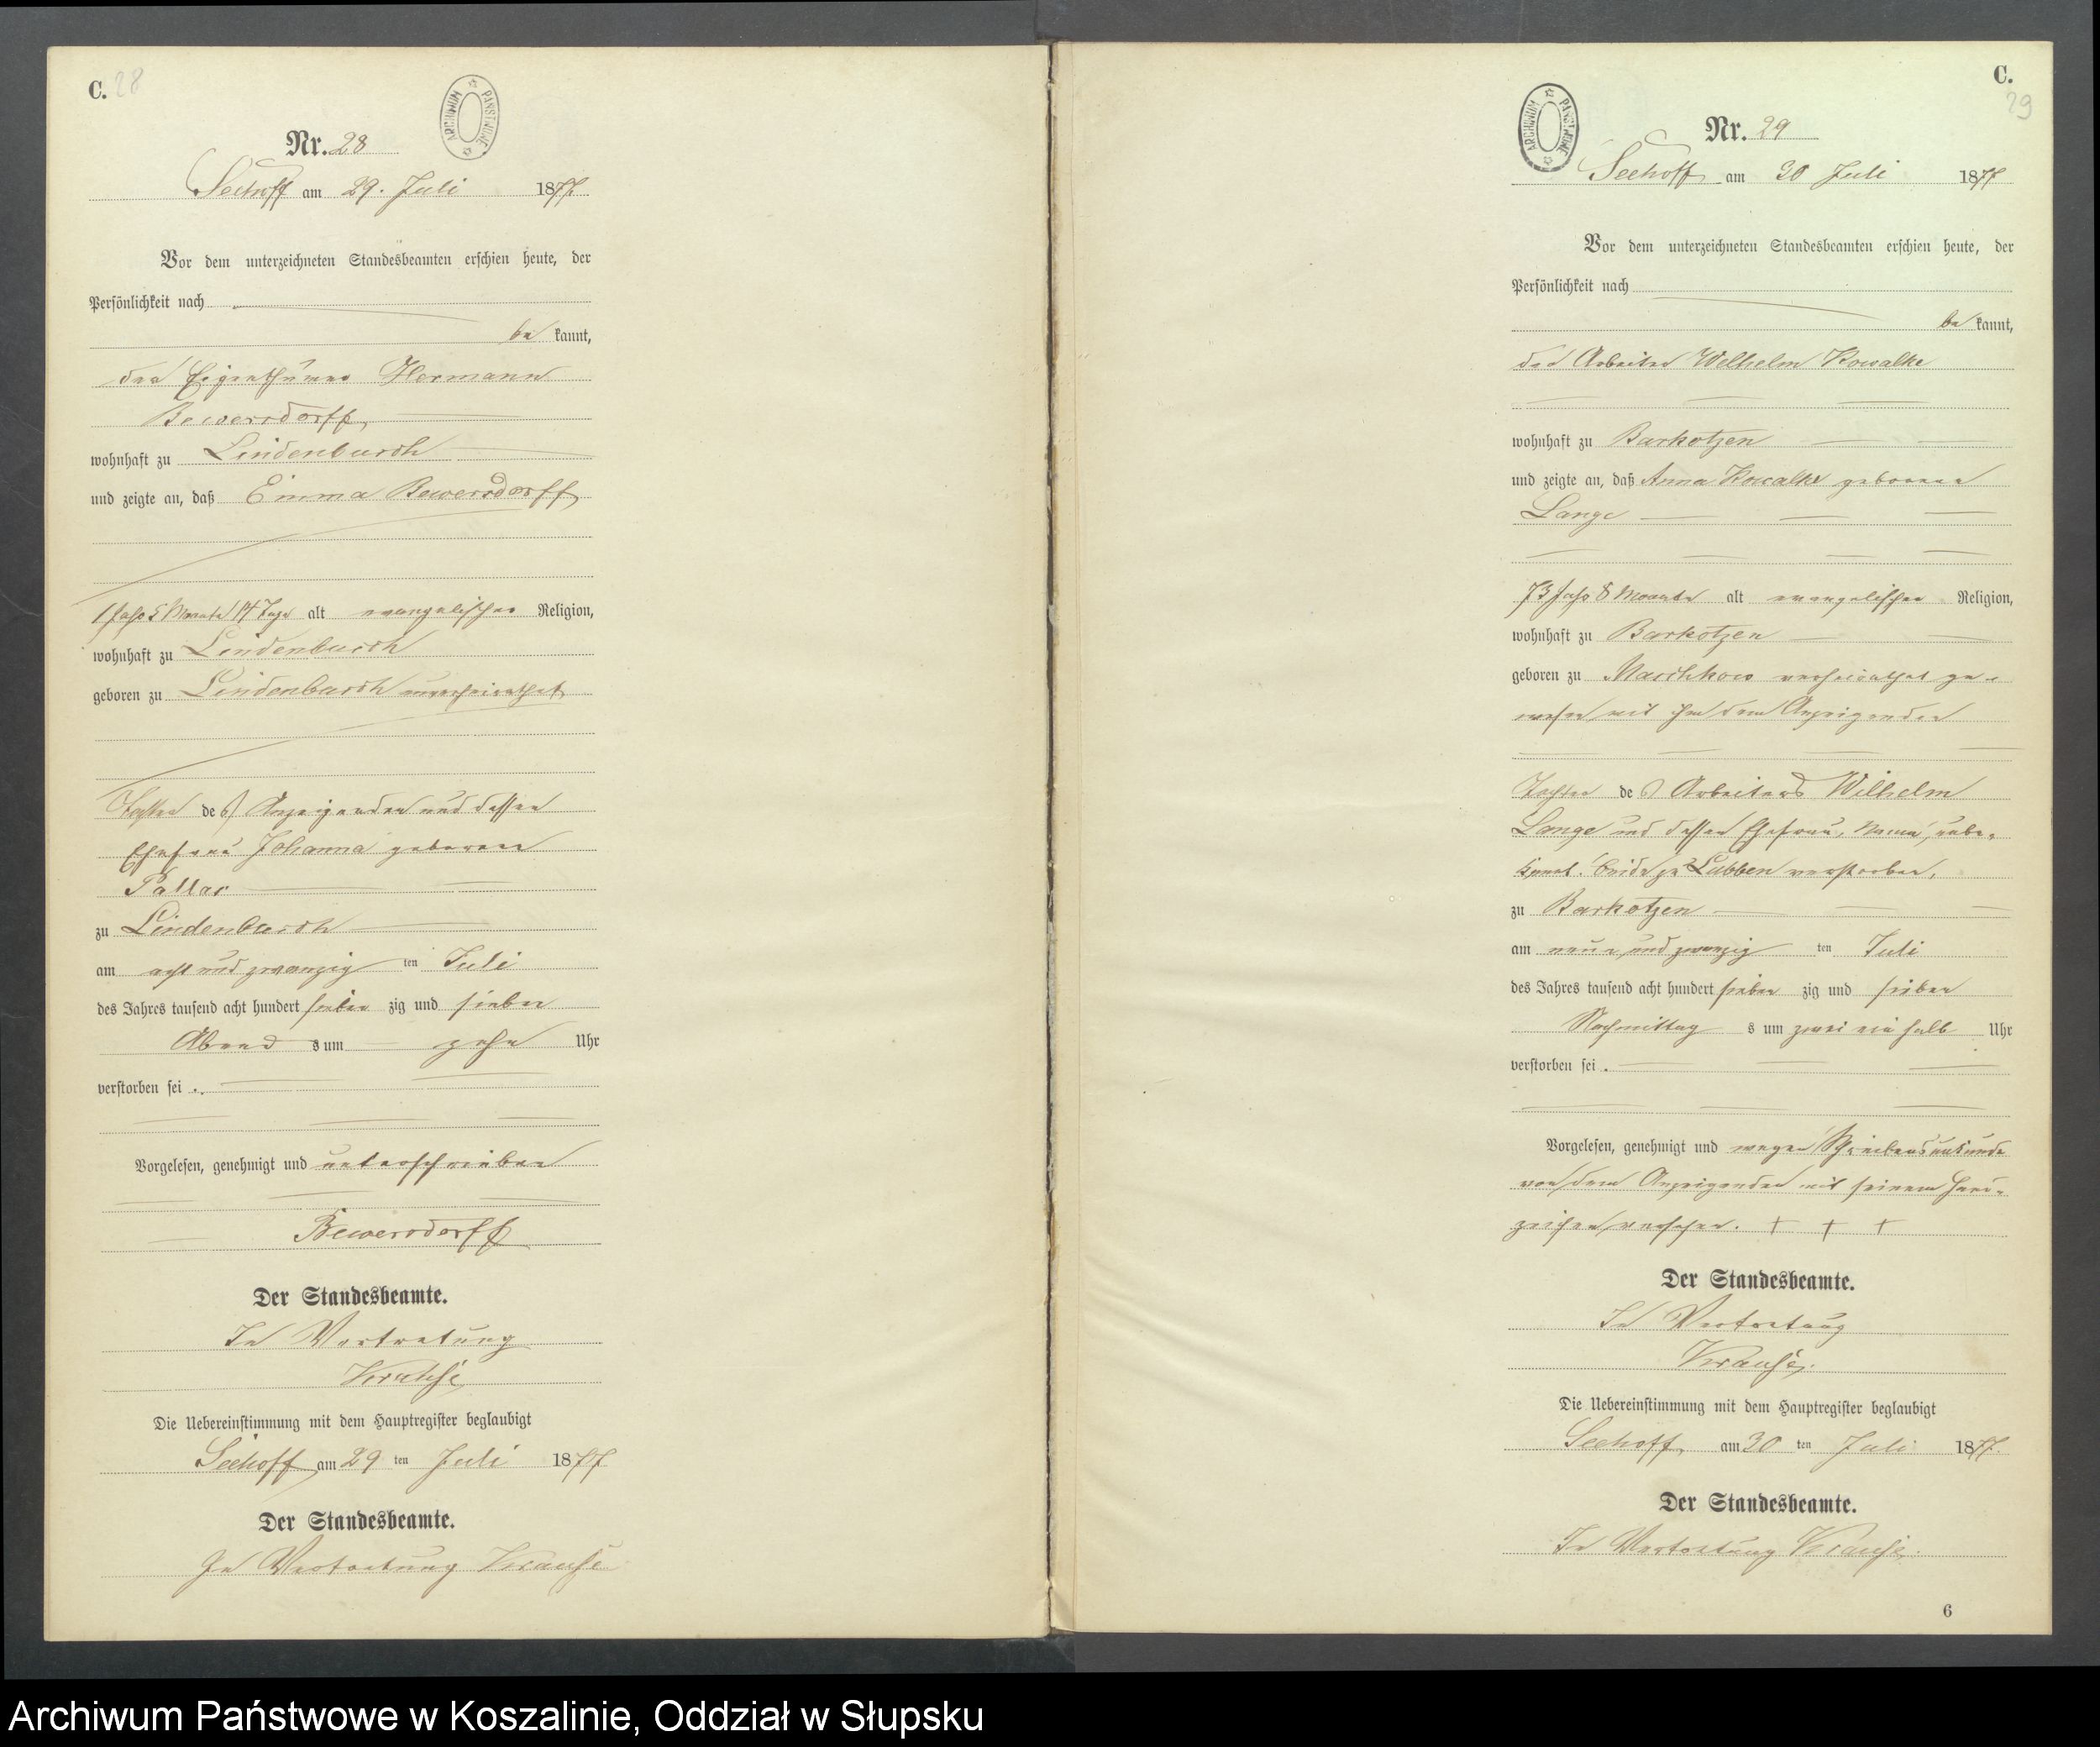 C. 28
ARCHIWUM PAŃSTWOWE
Nr. 28
Seehoff am 29. Juli 1877
Vor dem unterzeichneten Standesbeamten erschien heute, der
Persönlichkeit nach
be kannt,
der Eigenthümer Hermann
Bewersdorff,
wohnhaft zu Lindenbusch
und zeigte an, daß Emma Bewersdorff,
1 Jahr 5 Monate 14 Tage alt evangelischer Religion,
wohnhaft zu Lindenbusch
geboren zu Lindenbusch unverheirathet
Tochter des Anzeigenden und dessen
Ehefrau Johanna geborene
Pallas
zu Lindenbusch
am acht und zwanzig ten Juli
des Jahres tausend acht hundert sieben zig und sieben
Abend s um zehn Uhr
verstorben sei.
Vorgelesen, genehmigt und unterschrieben
Bewersdorff
Der Standesbeamte.
In Vertretung
Krause
Die Uebereinstimmung mit dem Hauptregister beglaubigt
Seehoff am 29 ten Juli 1877
Der Standesbeamte.
In Vertretung Krause
C.
29
ARCHIWUM PAŃSTWOWE
Nr. 29
Seehoff am 30 Juli 1877
Vor dem unterzeichneten Standesbeamten erschien heute, der
Persönlichkeit nach
be kannt,
der Arbeiter Wilhelm Kowalke
wohnhaft zu Barkotzen
und zeigte an, daß Anna Kowalke geborene
Lange
73 Jahr 8 Monate alt evangelischer Religion,
wohnhaft zu Barkotzen
geboren zu Maschkow verheirathet ge-
wesen mit ihm dem Anzeigenden
Tochter des Arbeiters Wilhelm
Lange und dessen Ehefrau, Name unbe-
kannt. beide zu Lubben verstorben,
zu Barkotzen
am neun und zwanzig ten Juli
des Jahres tausend acht hundert sieben zig und sieben
Nachmittag s um zwei ein halb Uhr
verstorben sei.
Vorgelesen, genehmigt und wegen Schreibensunkunde
von dem Anzeigenden mit seinem Hand-
zeichen versehen. + + +
Der Standesbeamte.
In Vertretung
Krause.
Die Uebereinstimmung mit dem Hauptregister beglaubigt
Seehoff, am 30 ten Juli 1877.
Der Standesbeamte.
In Vertretung Krause.
6
Archiwum Państwowe w Koszalinie, Oddział w Słupsku